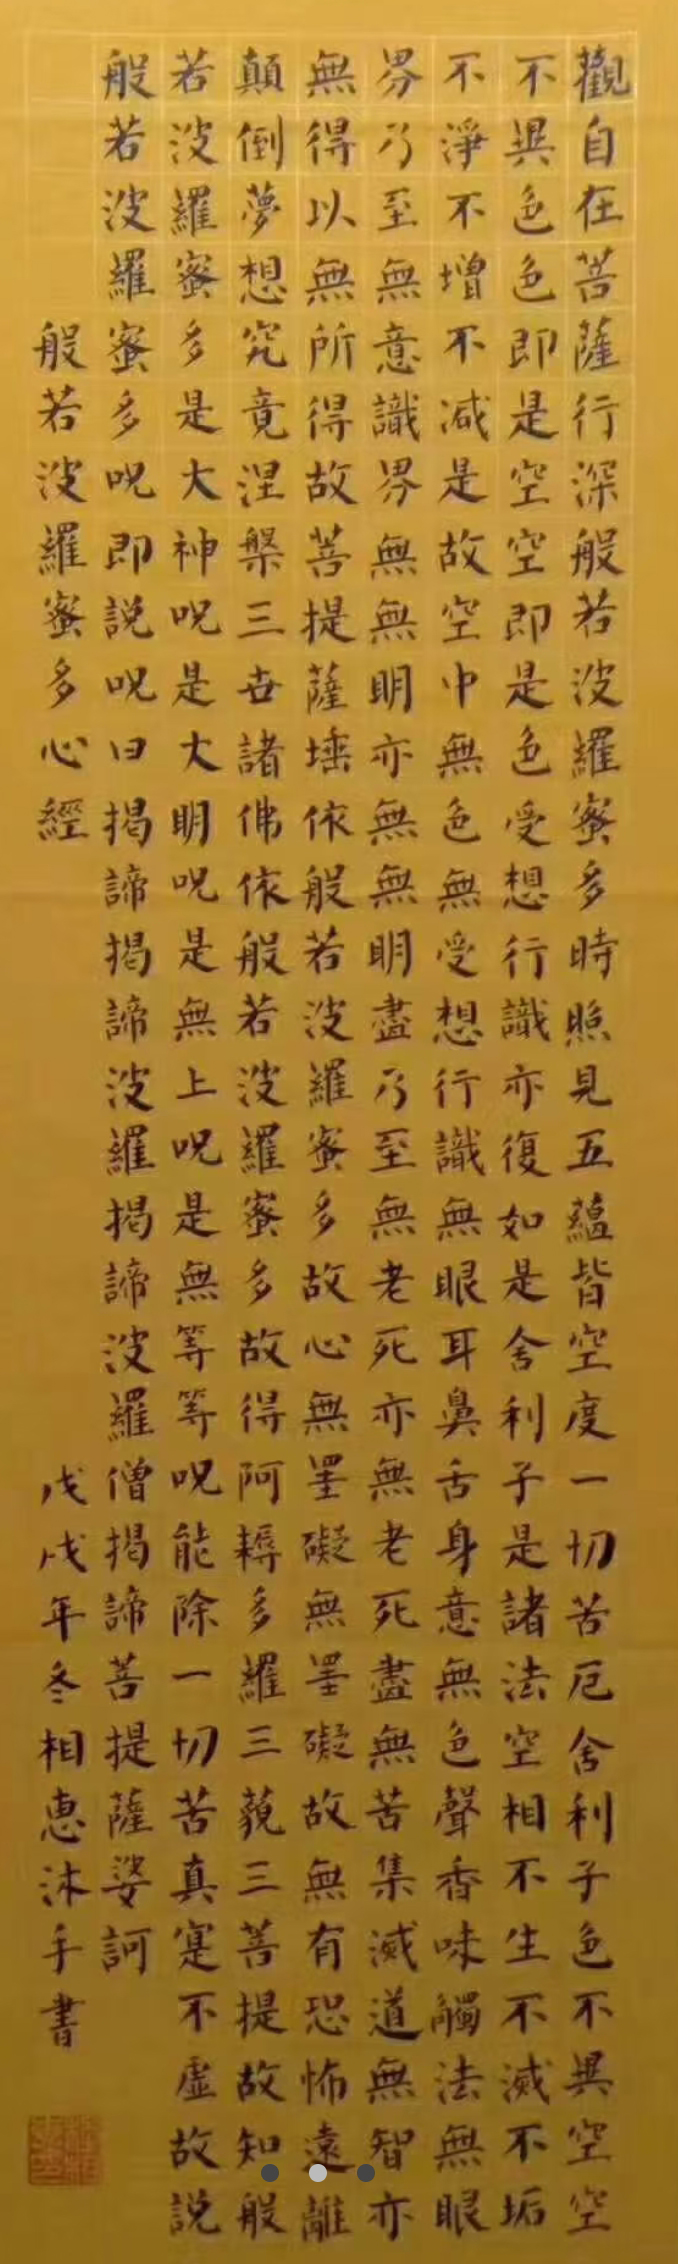 觀自在菩薩行深般若波羅蜜多時照見五蘊皆空度一切苦厄舍利子色不異空空
不異色色即是空空即是色受想行識亦復如是舍利子是諸法空相不生不滅不垢
不淨不增不减是故空中無色無受想行識無眼耳鼻舌身意無色聲香味觸法無眼
界乃至無意識界無無明亦無無明盡乃至無老死亦無老死盡無苦集滅道無智亦
無得以無所得故菩提薩埵依般若波羅蜜多故心無罣礙無罣礙故無有恐怖遠離
顛倒夢想究竟涅槃三世諸佛依般若波羅蜜多故得阿耨多羅三藐三菩提故知般
若波羅蜜多是大神呪是大明呪是無上呪是無等等呪能除一切苦真寔不虛故説
般若波羅蜜多呪即説呪曰揭諦揭諦波羅揭諦波羅僧揭諦菩提薩婆訶
般若波羅蜜多心經
戊戌年冬相惠沐手書